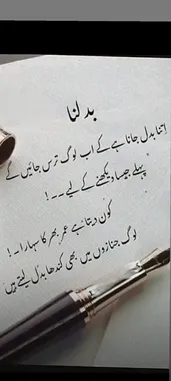 بدلنا
اتنا بدل جانا ہے کے اب لوگ ترس جائیں گے
پہلے جیسا دیکھنے کے لیے ---!
کون دیتا ہے عمر بھر کا سہارا -!
لوگ جنازوں میں بھی کندھا بدل لیتے ہیں